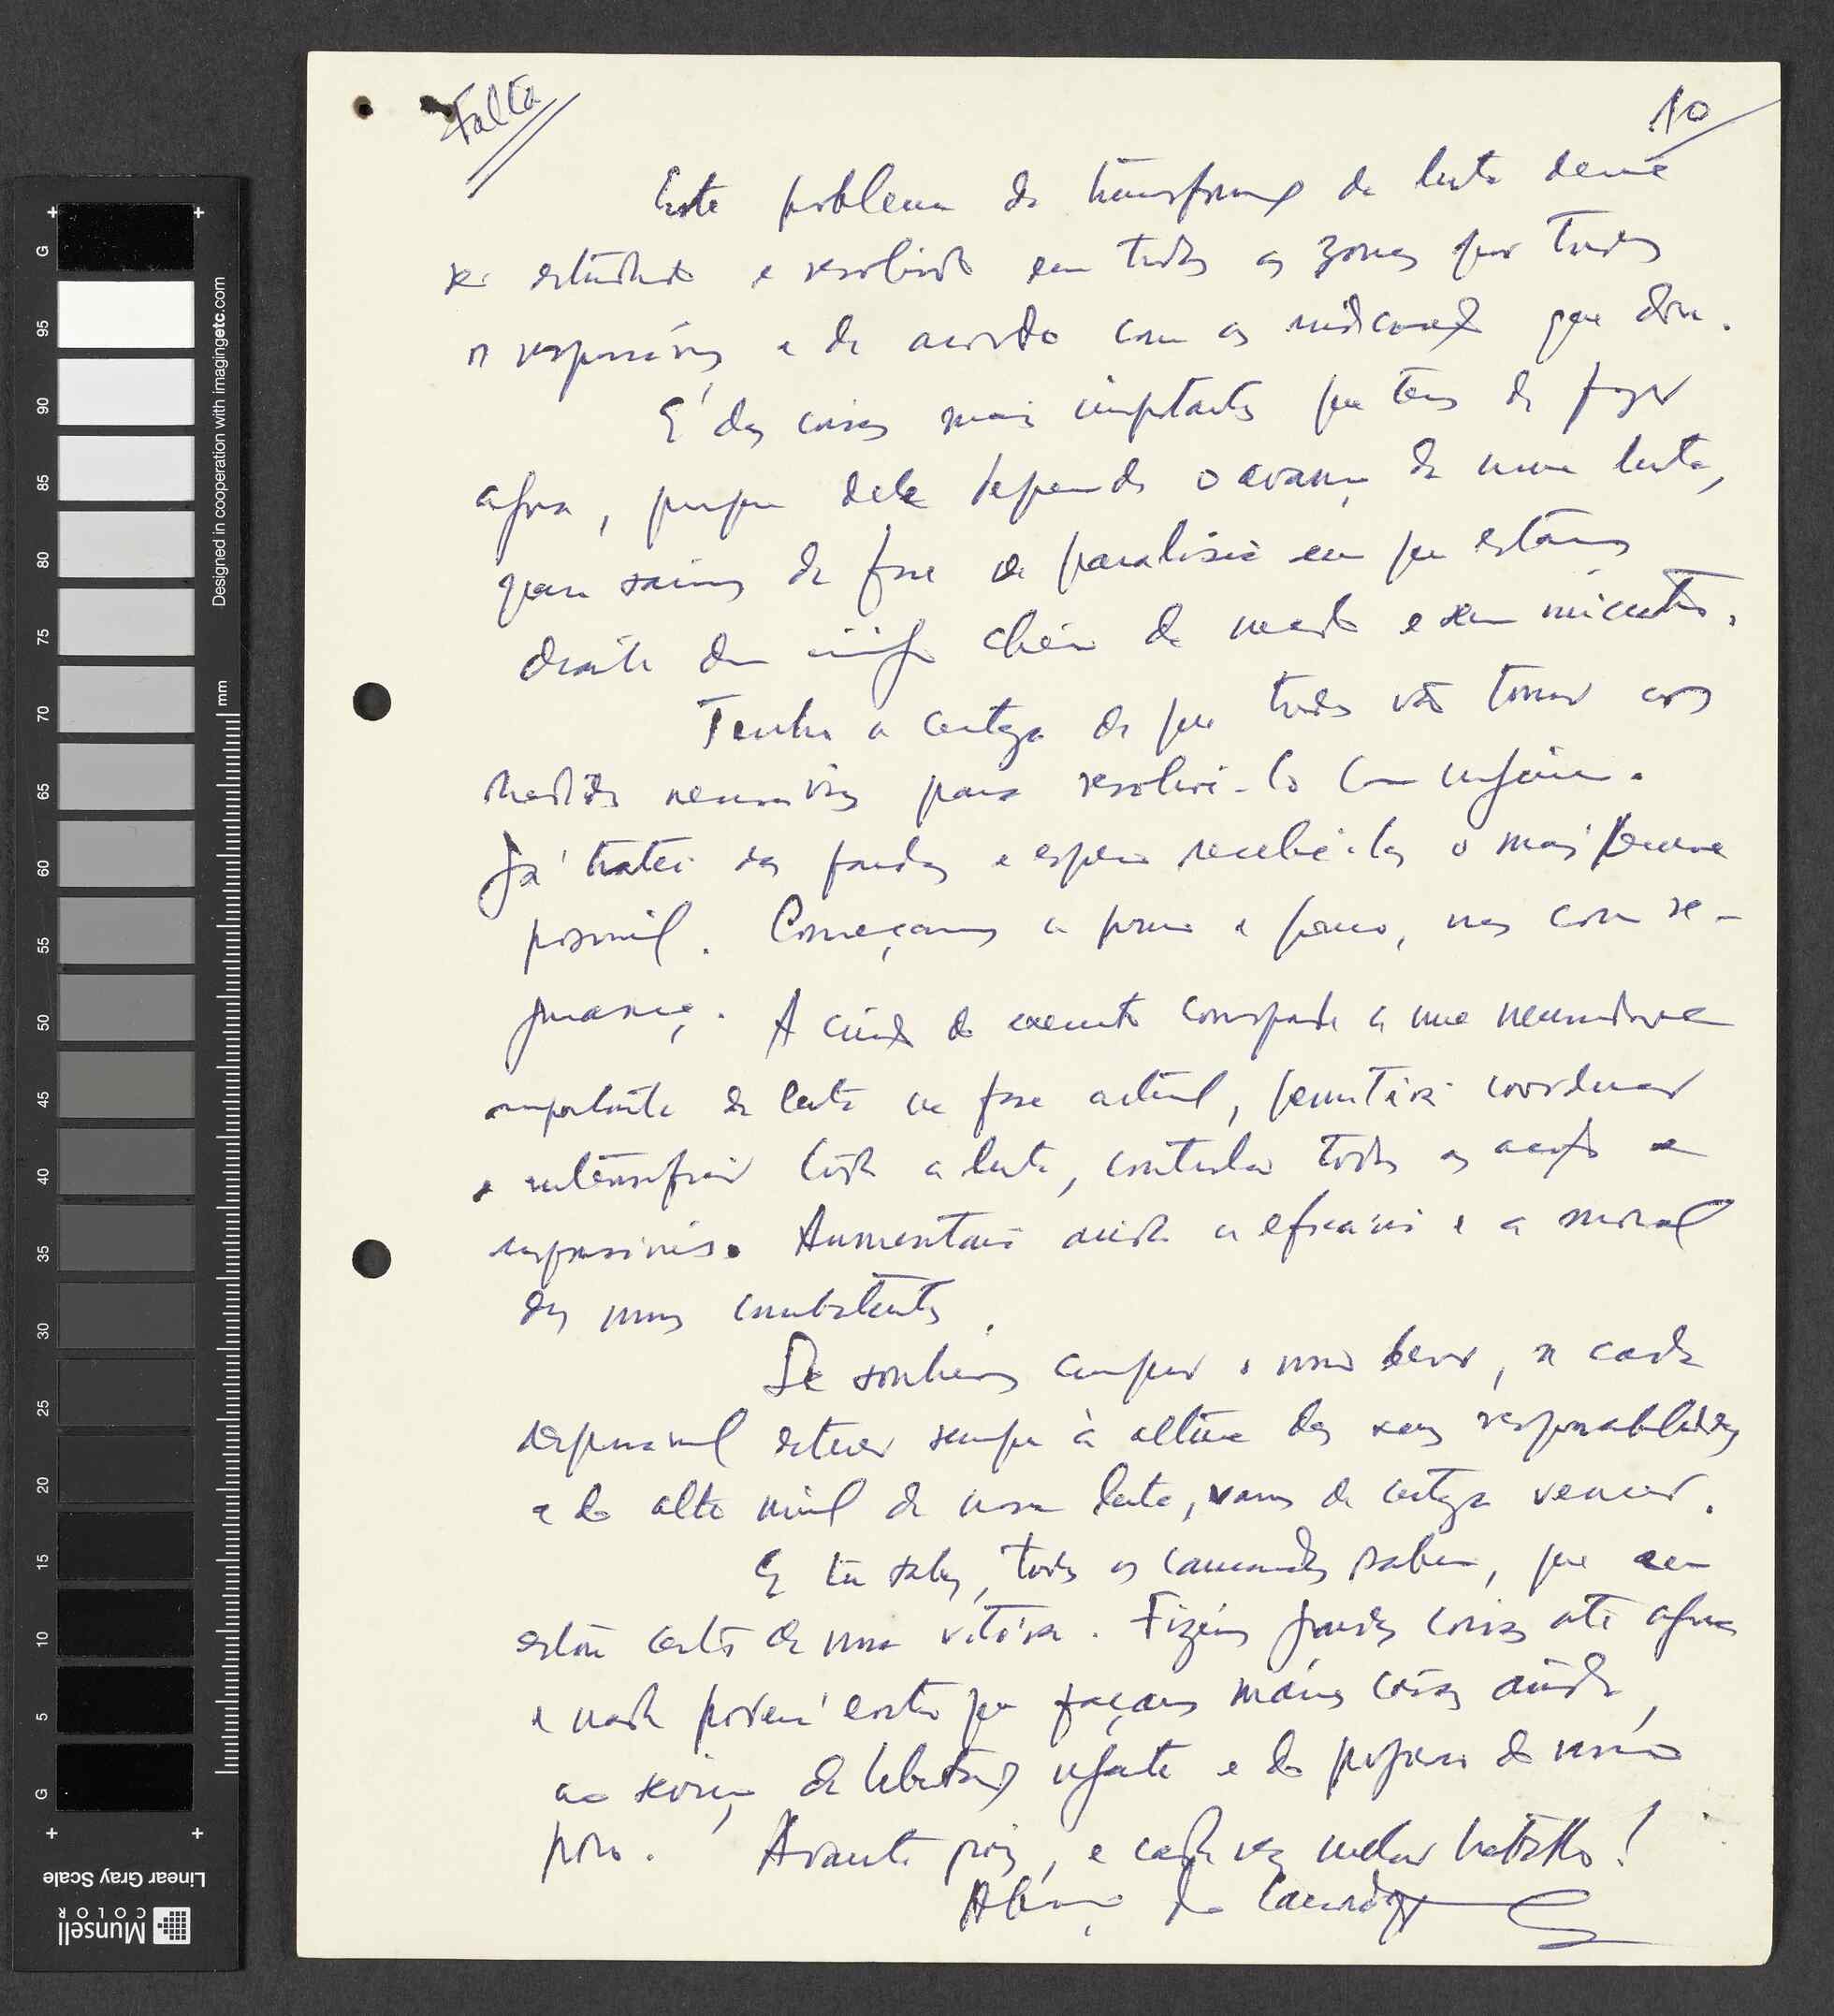 Falta
10
Este problema da transformação da luta deve
ser estudado e resolvido em todas as zonas por todos
os responsáveis e de acordo com as indicações que dou.
É das coisas mais importantes que temos de fazer
agora, porque dele depende o avanço da nossa luta,
para sairmos da fase de paralisia em que estamos
diante dum inimigo cheio de medo e sem iniciativa.
Tenho a certeza de que todos vão tomar as
medidas necessárias para resolvê-lo com urgência.
Já tratei das fardas e espero recebê-las o mais breve
possível. Começamos a pouco e pouco, mas com se-
gurança. A criação do exército corresponde a uma necessidade
importante da luta na fase actual, permitirá coordenar
e intensificar toda a luta, controlar todas as acções e
responsáveis. Aumentará ainda a eficácia e a moral
dos nossos combatentes.
Se soubermos cumprir o nosso dever, se cada
responsável estiver sempre à altura das suas responsabilidades
e do alto nível da nossa luta, vamos de certeza vencer.
E tu sabes, todos os camaradas sabem, que
estou certo da nossa vitória. Fizémos grandes coisas até agora
e nada poderá evitar que façamos maiores coisas ainda,
ao serviço da libertação urgente e do progresso do nosso
povo. Avante pois, e cada vez melhor trabalho!
Abraço do camarada